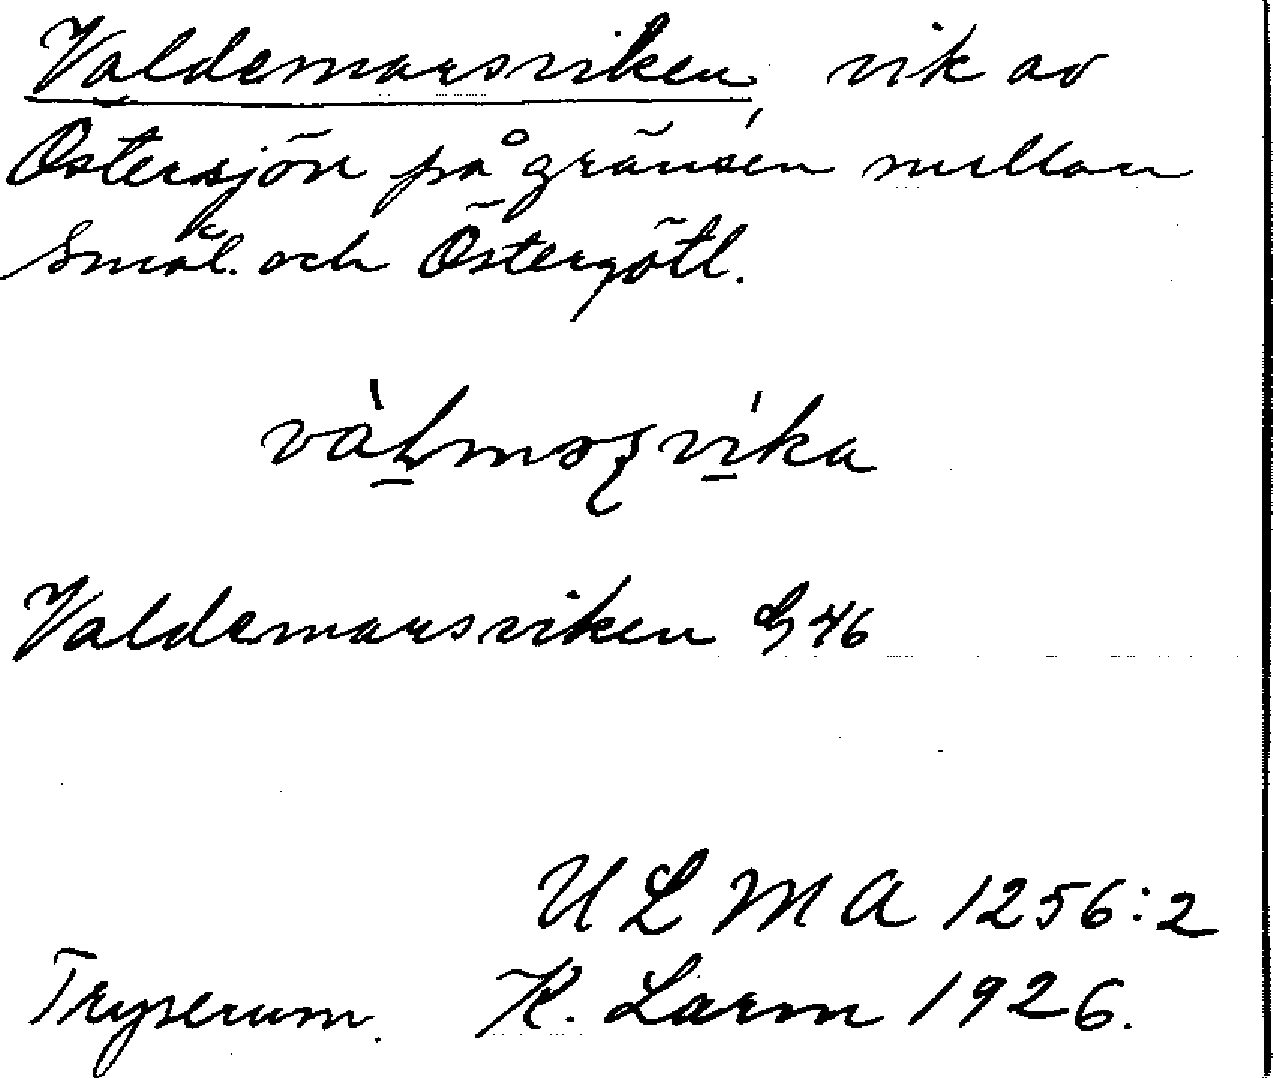 Valdemarsviken, vik av
Östersjön på gränsen mellan
Smål. och Östergötl.
Valdemarsviken G 46
ULMA 1256:2
Tryserum. K. Larm 1926.